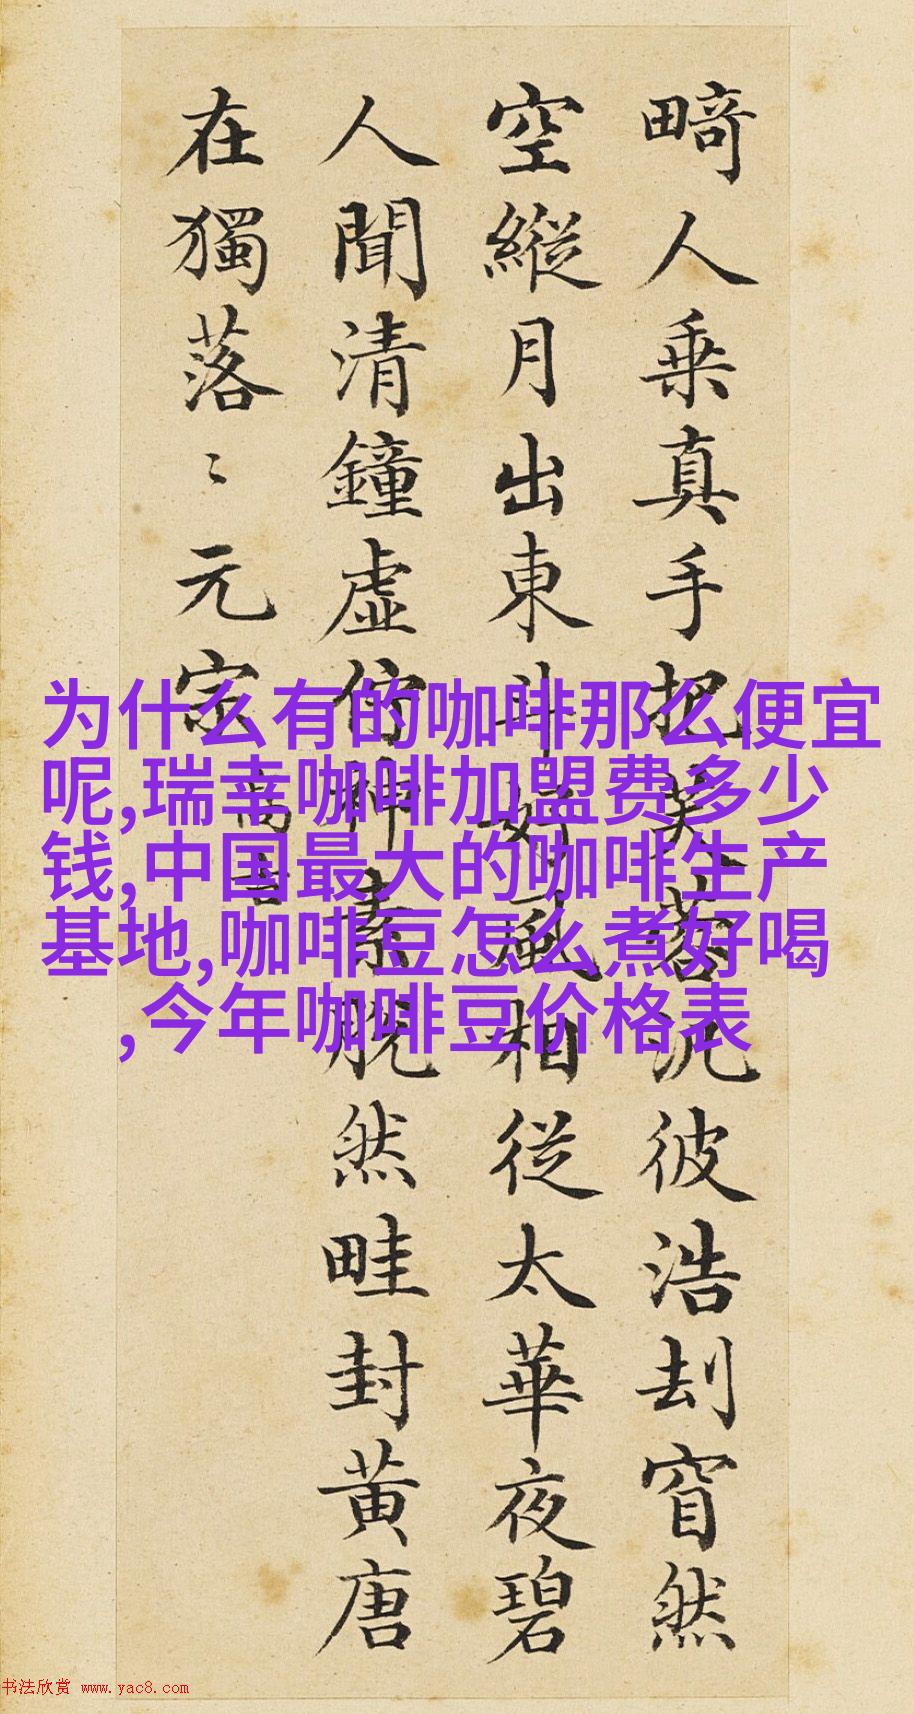 畸人乗真手把芙蓉汎彼浩刦窅然
空縱月出東斗好風相從太華夜碧
人聞清鐘虚佇神素脱然畦封黄唐
在獨落〻元宗
为什么有的咖啡那么便宜
呢,瑞幸咖啡加盟费多少
钱,中国最大的咖啡生产
基地,咖啡豆怎么煮好喝
,今年咖啡豆价格表
书法欣赏 www.yac8.com